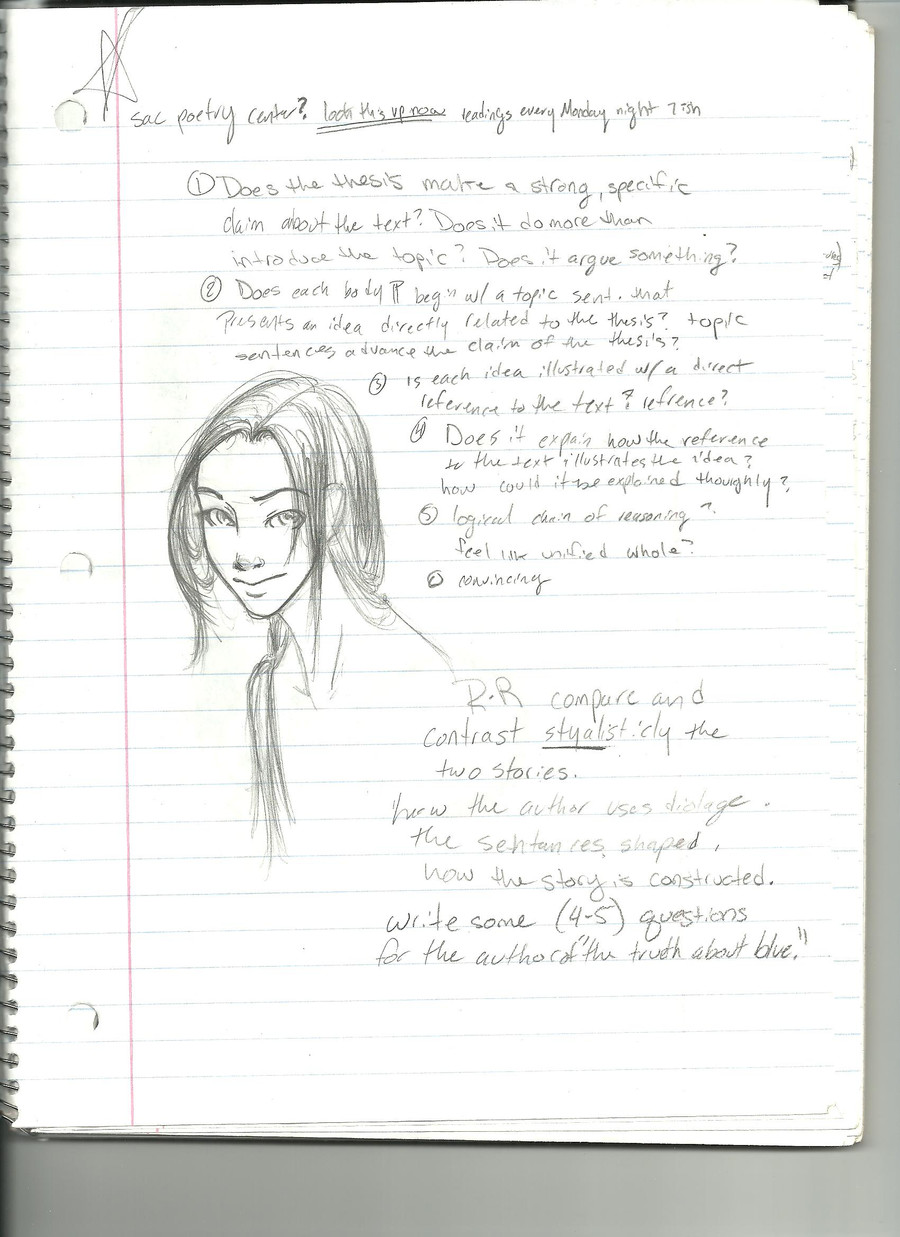 sac poetry center? look this up now readings every Monday night 7ish
① Does the thesis make a strong, specific
claim about the text? Does it do more than
introduce the topic? Does it argue something?
② Does each body ¶ begin w/ a topic sent. that
Presents an idea directly related to the thesis? topic
sentences advance the claim of the thesis?
③ is each idea illustrated w/ a direct
reference to the text? refrence?
④ Does it expain how the reference
to the text illustrates the idea?
how could it be explained thoughly?
⑤ logical chain of reasoning?
feel like unified whole?
convincing
R.R compare and
contrast styalisticly the
two stories.
how the author uses dialage.
the sentances shaped,
how the story is constructed.
write some (4-5) questions
for the author of "the truth about blue."